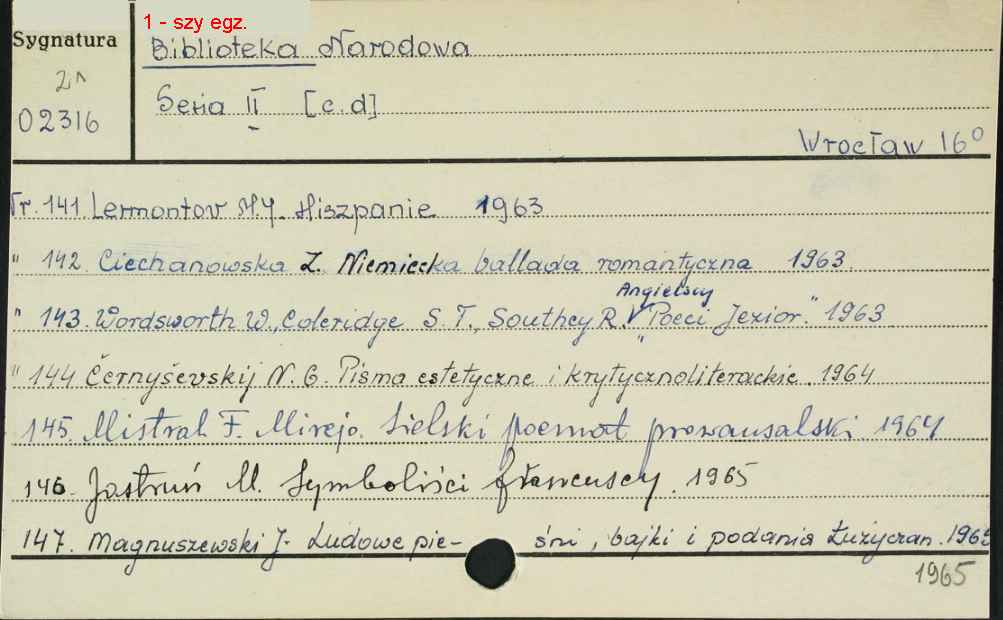 1 - szy egz.
Sygnatura
Biblioteka Narodowa
02316
Seria II [c.d]
Wrocław 16⁰
Nr. 141. Lermontov M.J. Hiszpanie 1963
" 142. Ciechanowska Z. Niemiecka ballada romantyczna 1963.
Angielscy
" 143. Wordsworth W., Coleridge S. T., Southey R. √ "Poeci Jezior." 1963
" 144 Černyševskij N. G. Pisma estetyczne i krytycznoliterackie. 1964
145. Mistral F. Mirejo. Sielski poemat prowansalski. 1964
146. Jastrun M. Symboliści francuscy. 1965
147. Magnuszewski J. Ludowe pie- śni, bajki i podania Łużyczan. 1965
1965